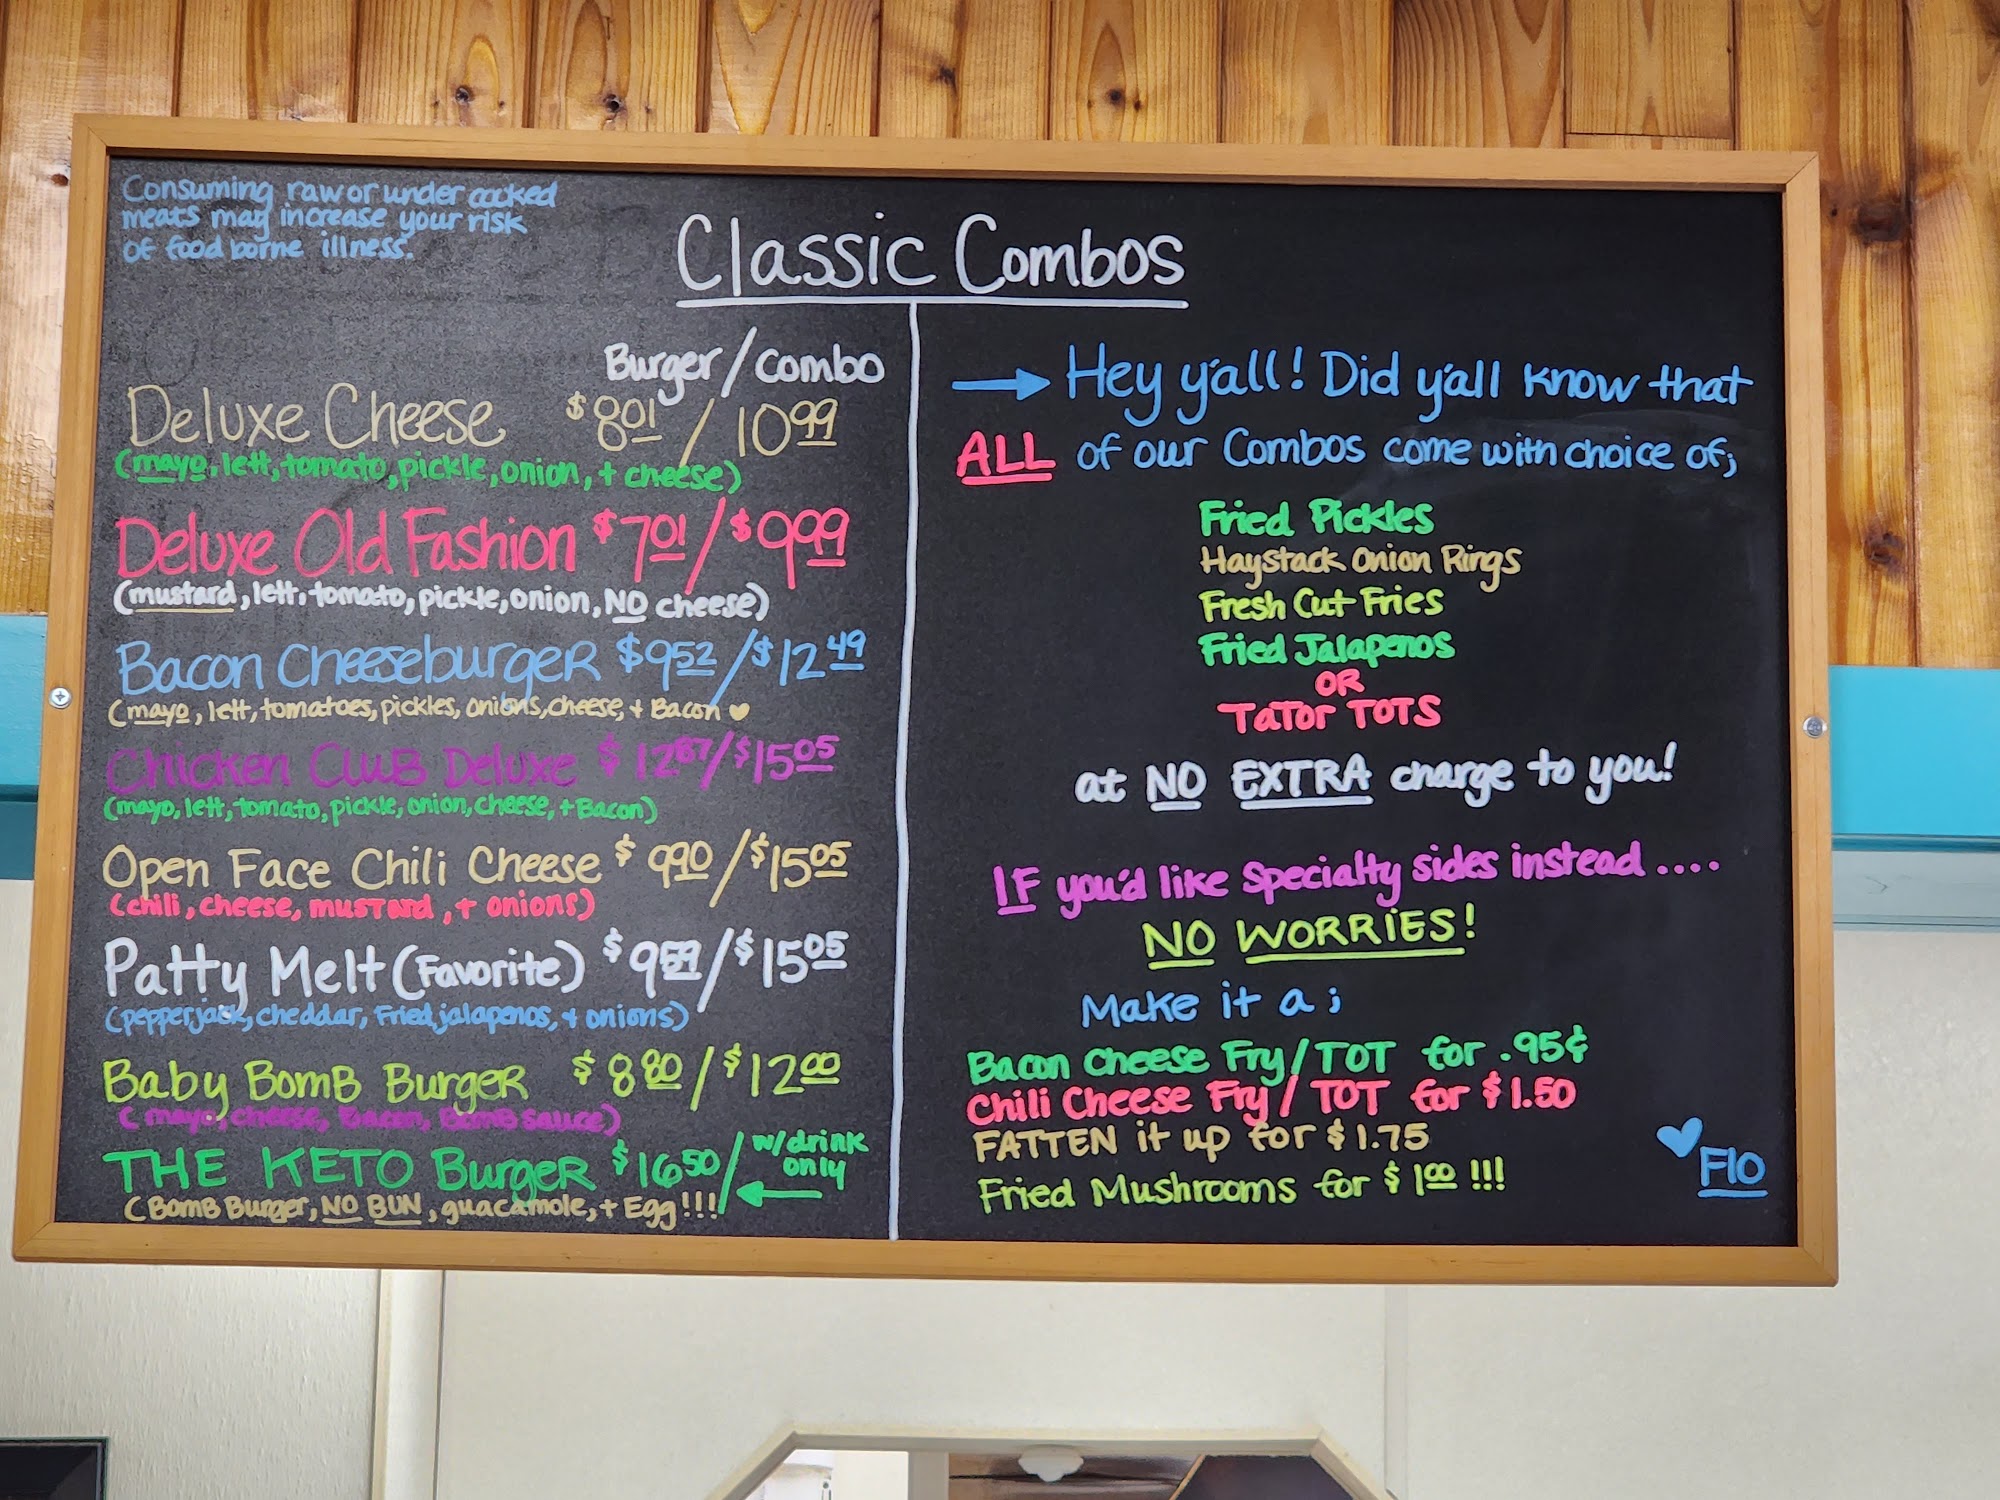 Consuming raw or under cooked
meats may increase your risk
of food borne illness.
Classic Combos
Burger / combo
Deluxe Cheese $8.01 / 10.99
(mayo, lett, tomato, pickle, onion, + cheese)
Deluxe Old Fashion $7.01 / $9.99
(mustard, lett, tomato, pickle, onion, NO cheese)
Bacon Cheeseburger $9.52 / $12.49
(mayo, lett, tomatoes, pickles, onions, cheese, + Bacon ♥
Chicken CLUB Deluxe $12.87 / $15.05
(mayo, lett, tomato, pickle, onion, cheese, + Bacon)
Open Face Chili Cheese $9.90 / $15.05
(chili, cheese, mustard, + onions)
Patty Melt (Favorite) $ / $15.05
(pepperjack, cheddar, Fried jalapenos, + onions)
Baby Bomb Burger $8.80 / $12.00
(mayo, cheese, Bacon, Bomb sauce)
THE KETO Burger $16.50 / w/drink
only
(Bomb Burger, NO BUN, guacamole, + Egg!!!
→ Hey y'all! Did y'all know that
ALL of our Combos come with choice of;
Fried Pickles
Haystack Onion Rings
Fresh Cut Fries
Fried Jalapenos
OR
TaTor TOTS
at NO EXTRA charge to you!
IF you'd like Specialty sides instead ....
NO WORRIES!
Make it a ;
Bacon Cheese Fry / TOT for .95¢
Chili Cheese Fry / TOT for $1.50
FATTEN it up for $1.75
Fried Mushrooms for $1.00 !!!
♥ FIO